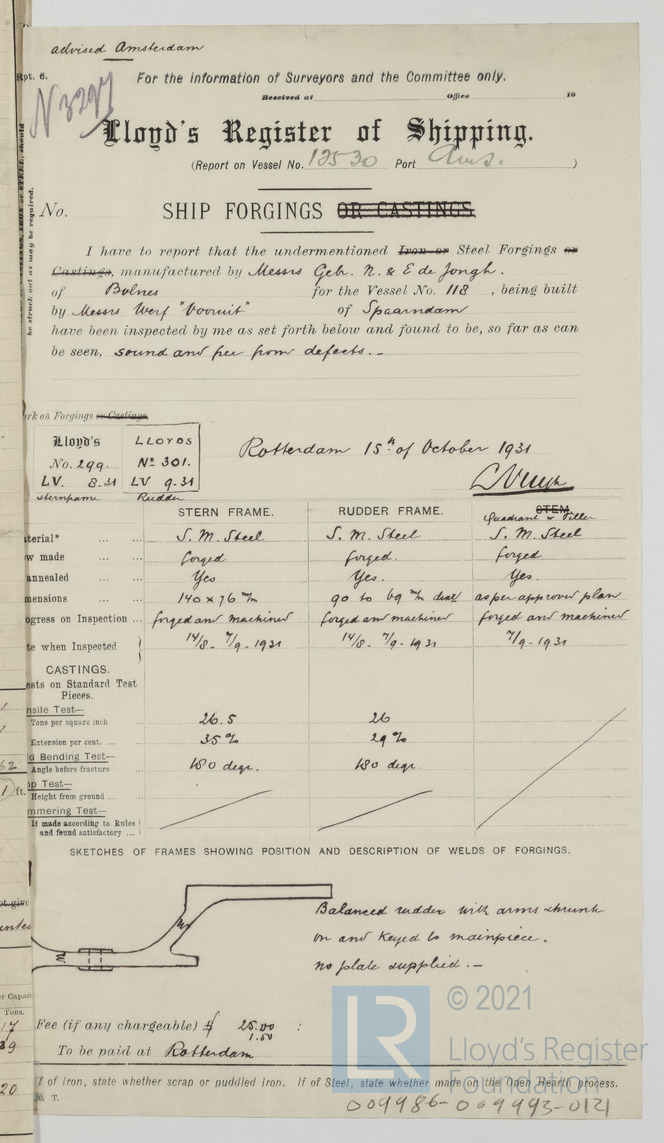 advised Amsterdam
Rpt. 6.
For the information of Surveyors and the Committee only.
N 3297
Received at Office 19
Lloyd's Register of Shipping.
(Report on Vessel No. 12530 Port Ams. )
be struck out as may be required.
No. SHIP FORGINGS OR CASTINGS
I have to report that the undermentioned Iron or Steel Forgings or
Castings, manufactured by Messrs Gebr. N. & E de Jongh.
of Bolnes for the Vessel No. 118, being built
by Messrs Werf "Vooruit" of Spaarndam
have been inspected by me as set forth below and found to be, so far as can
be seen, sound and free from defects. -
rk on Forgings or Castings
Lloyd's LLOYDS
No. 299. No 301.
LV. 8-31 LV 9-31
sternframe Rudder
Rotterdam 15th of October 1931
STERN FRAME. RUDDER FRAME. STEM.
Quadrant & Tiller
terial* S. M. Steel S. M. Steel S. M. Steel
w made forged forged. forged
annealed Yes Yes. Yes.
mensions 140 x 76 m/m 90 to 69 m/m diar as per approved plan
ogress on Inspection forged and machined forged and machined forged and machined
te when Inspected 14/8 - 7/9 - 1931 14/8 - 7/9 - 1931 7/9 - 1931
CASTINGS.
ests on Standard Test
Pieces.
nsile Test—
Tons per square inch 26.5 26
Extension per cent. 35 % 29 %
d Bending Test—
Angle before fracture 180 degr. 180 degr.
op Test—
Height from ground
mmering Test—
If made according to Rules
and found satisfactory
SKETCHES OF FRAMES SHOWING POSITION AND DESCRIPTION OF WELDS OF FORGINGS.
W
W
Balanced rudder with arms shrunk
on and keyed to mainpiece.
no plate supplied. -
Fee (if any chargeable) £ 25.00 :
1.50
To be paid at Rotterdam
f of Iron, state whether scrap or puddled Iron. If of Steel, state whether made on the Open Hearth process.
T.
009986-009993-0121
LR
© 2021
Lloyd's Register
Foundation
62
ft.
ot give
r Capaci
Tons.
17
39
20